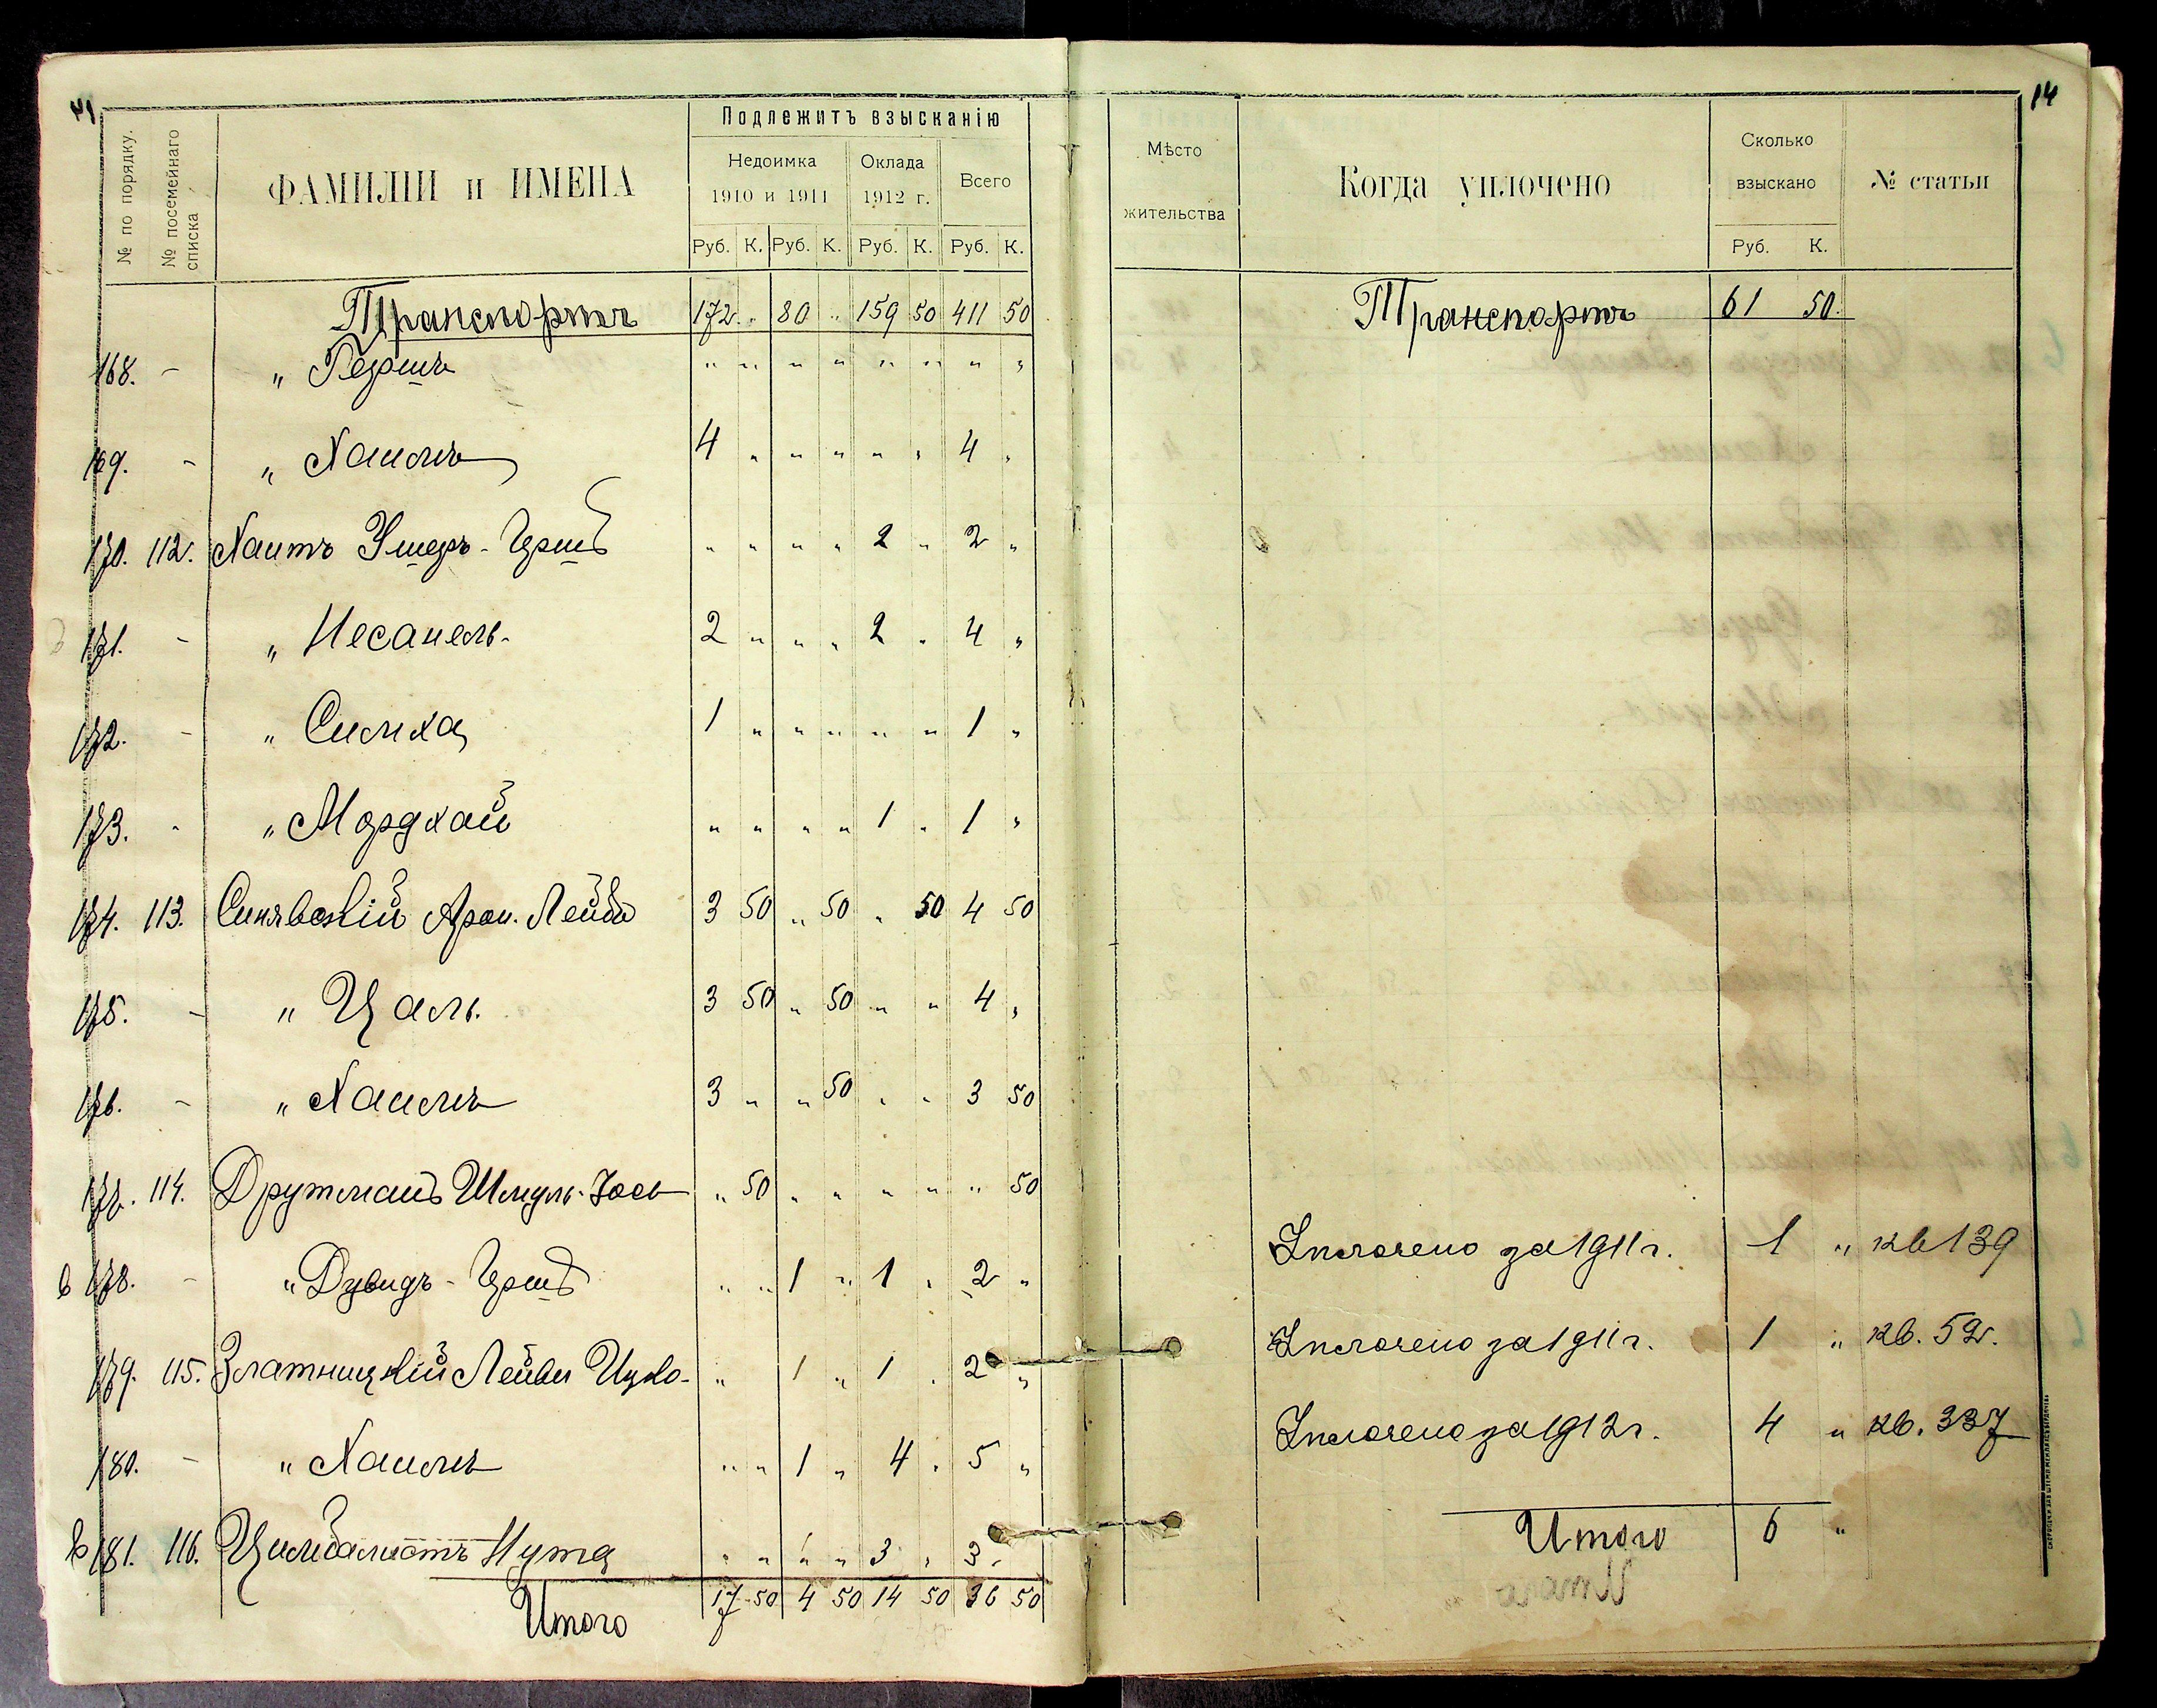 41
14
№ по порядку.
№ посемейнаго списка
ФАМИЛІИ и ИМЕНА
Подлежитъ взысканію
Недоимка
1910 и 1911
Оклада
1912 г.
Всего
Руб. К. Руб. К. Руб. К. Руб. К.
Мѣсто
жительства
Когда уплочено
Сколько
взыскано
Руб. К.
№ статьи
Транспортъ 172 " 80 " 159 50 411 50
Транспортъ 61 50.
168. - " Гершъ " " " " " " " "
169. - " Хаимъ 4 " " " " " 4 "
170. 112. Хаитъ Ушеръ-Гершъ " " " " 2 " 2 "
171. - " Несанель. 2 " " " 2 " 4 "
172. - " Симха 1 " " " " " 1 "
173. - " Мордхай " " " " 1 " 1 "
174. 113. Синявскій Арон. Лейба 3 50 " 50 " 50 4 50
175. - " Цаль. 3 50 " 50 " " 4 "
176. - " Хаимъ 3 " " 50 " " 3 50
177. 114. Друтманъ Шмуль-Іось " 50 " " " " " 50
178. - " Дувидъ-Гершъ " " 1 " 1 " 2 "
Уплочено за 1911 г. 1 " кв 139
179. 115. Златницкій Лейви Ицко- " 1 " 1 " 2 "
Уплочено за 1911 г. 1 " кв. 52.
180. - " Хаимъ " " 1 " 4 " 5 "
Уплочено за 1912 г. 4 " кв. 337
181. 116. Цимбалистъ Нута " " " " 3 " 3 "
Итого 17 50 4 50 14 50 36 50
Итого 6 "